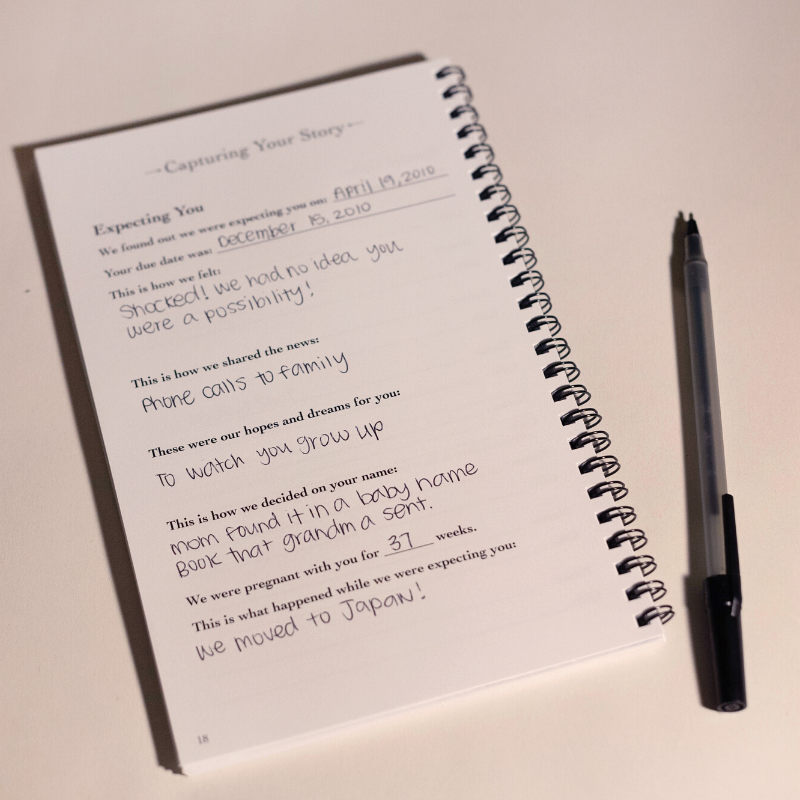 Capturing Your Story
Expecting You
We found out we were expecting you on: April 19, 2010
Your due date was: December 15, 2010
This is how we felt:
Shocked! we had no idea you
were a possibility!
This is how we shared the news:
Phone calls to family
These were our hopes and dreams for you:
To watch you grow up
This is how we decided on your name:
mom found it in a baby name
Book that grandma sent.
We were pregnant with you for 37 weeks.
This is what happened while we were expecting you:
we moved to Japan!
18